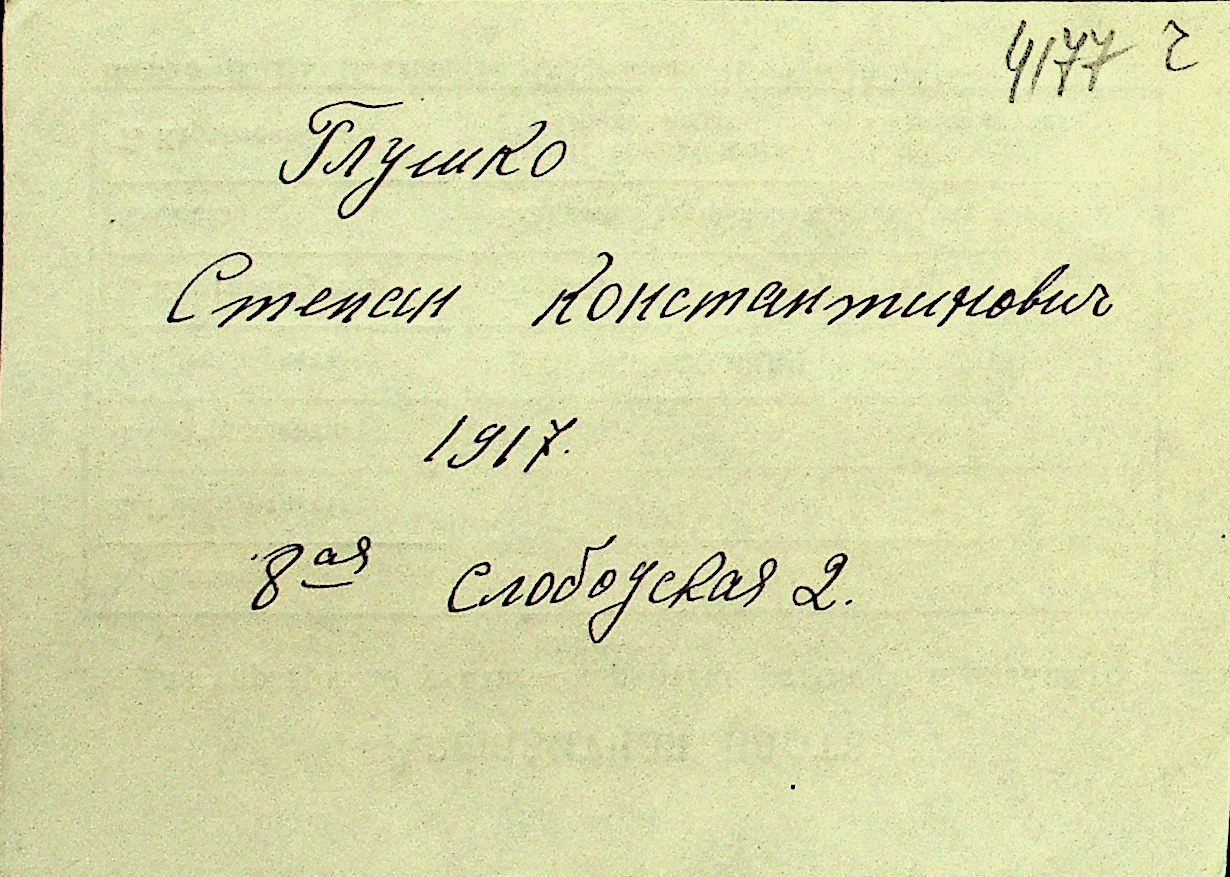 4177 г
Глушко
Степан Константинович
1917.
8ая Слободская 2.